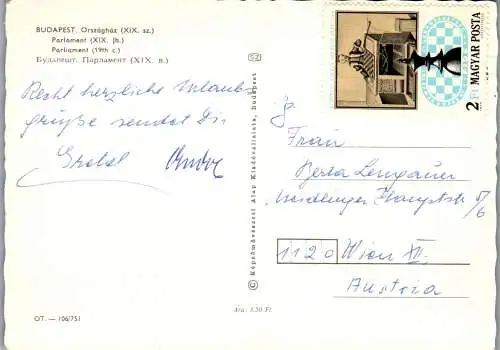 BUDAPEST. Országház (XIX. sz.)
Parlament (XIX. Jh.)
Parliament (19th c.)
Будапешт. Парламент (XIX. в.)
Recht herzliche Urlaubs
grüße sendet Dir
Gretel
OT. — 106/751
© Képzőművészeti Alap Kiadóvállalata, Budapest
Ára: 3,50 Ft
2 Ft MAGYAR POSTA
Frau
Berta
Hauptstr
5/6
1120 Wien XII.
Austria